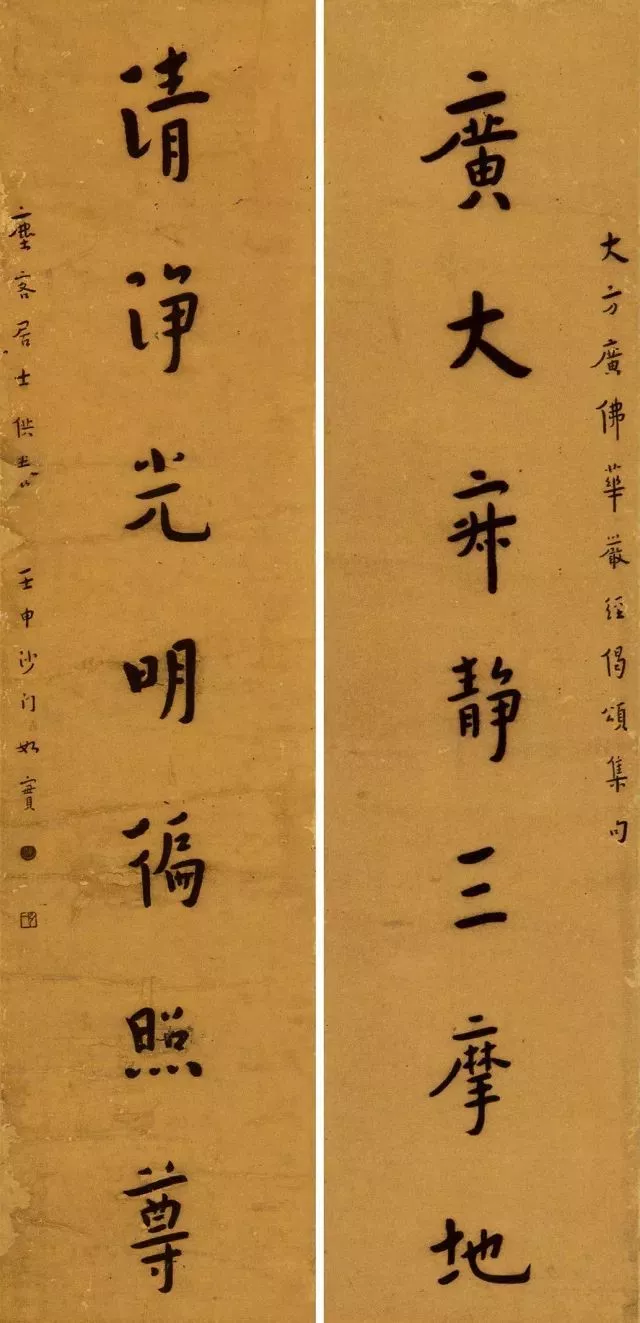 大方廣佛華嚴經偈頌集句
廣大寂靜三摩地
清淨光明徧照尊
塵客居士供養 壬申沙門如實